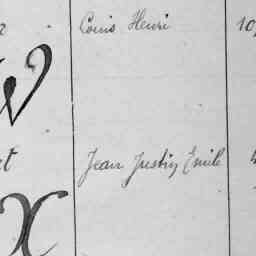 Louis Henri 10
W
t Jean Justin Emile
X